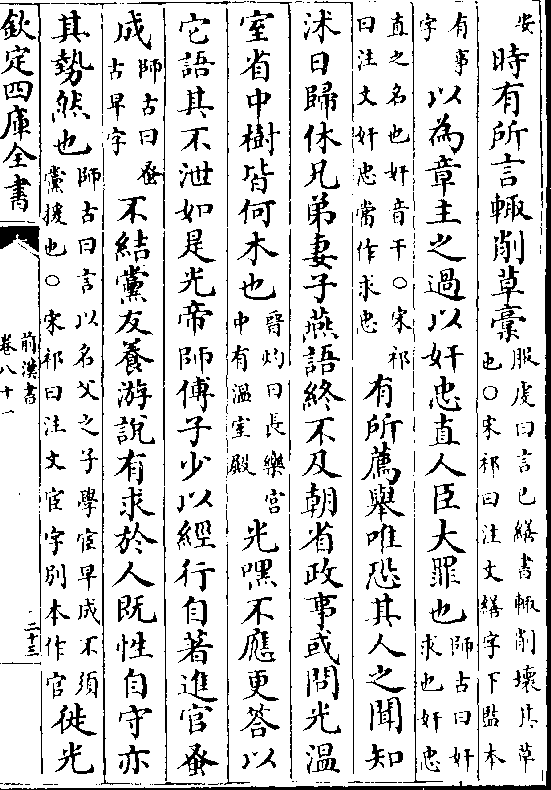 安
時有所言輒削草藁服虔曰言已繕書輒削壞其草
也○宋祁曰注文繕字下監本
有事
字
以為章主之過以奸忠直人臣大罪也師古曰奸
求也奸忠
直之名也奸音干○宋祁
曰注文奸忠當作求忠
有所薦舉唯恐其人之聞知
沐日歸休兄弟妻子燕語終不及朝省政事或問光溫
室省中樹皆何木也晉灼曰長樂宮
中有溫室殿
光嘿不應更答以
它語其不泄如是光帝師傅子少以經行自著進官蚤
成師古曰蚤
古早字
不結黨友養游說有求於人既性自守亦
其勢然也師古曰言以名父之子學宦早成不須
黨援也○宋祁曰注文宦字別本作官
徙光
欽定四庫全書
前漢書
卷八十一
二十三